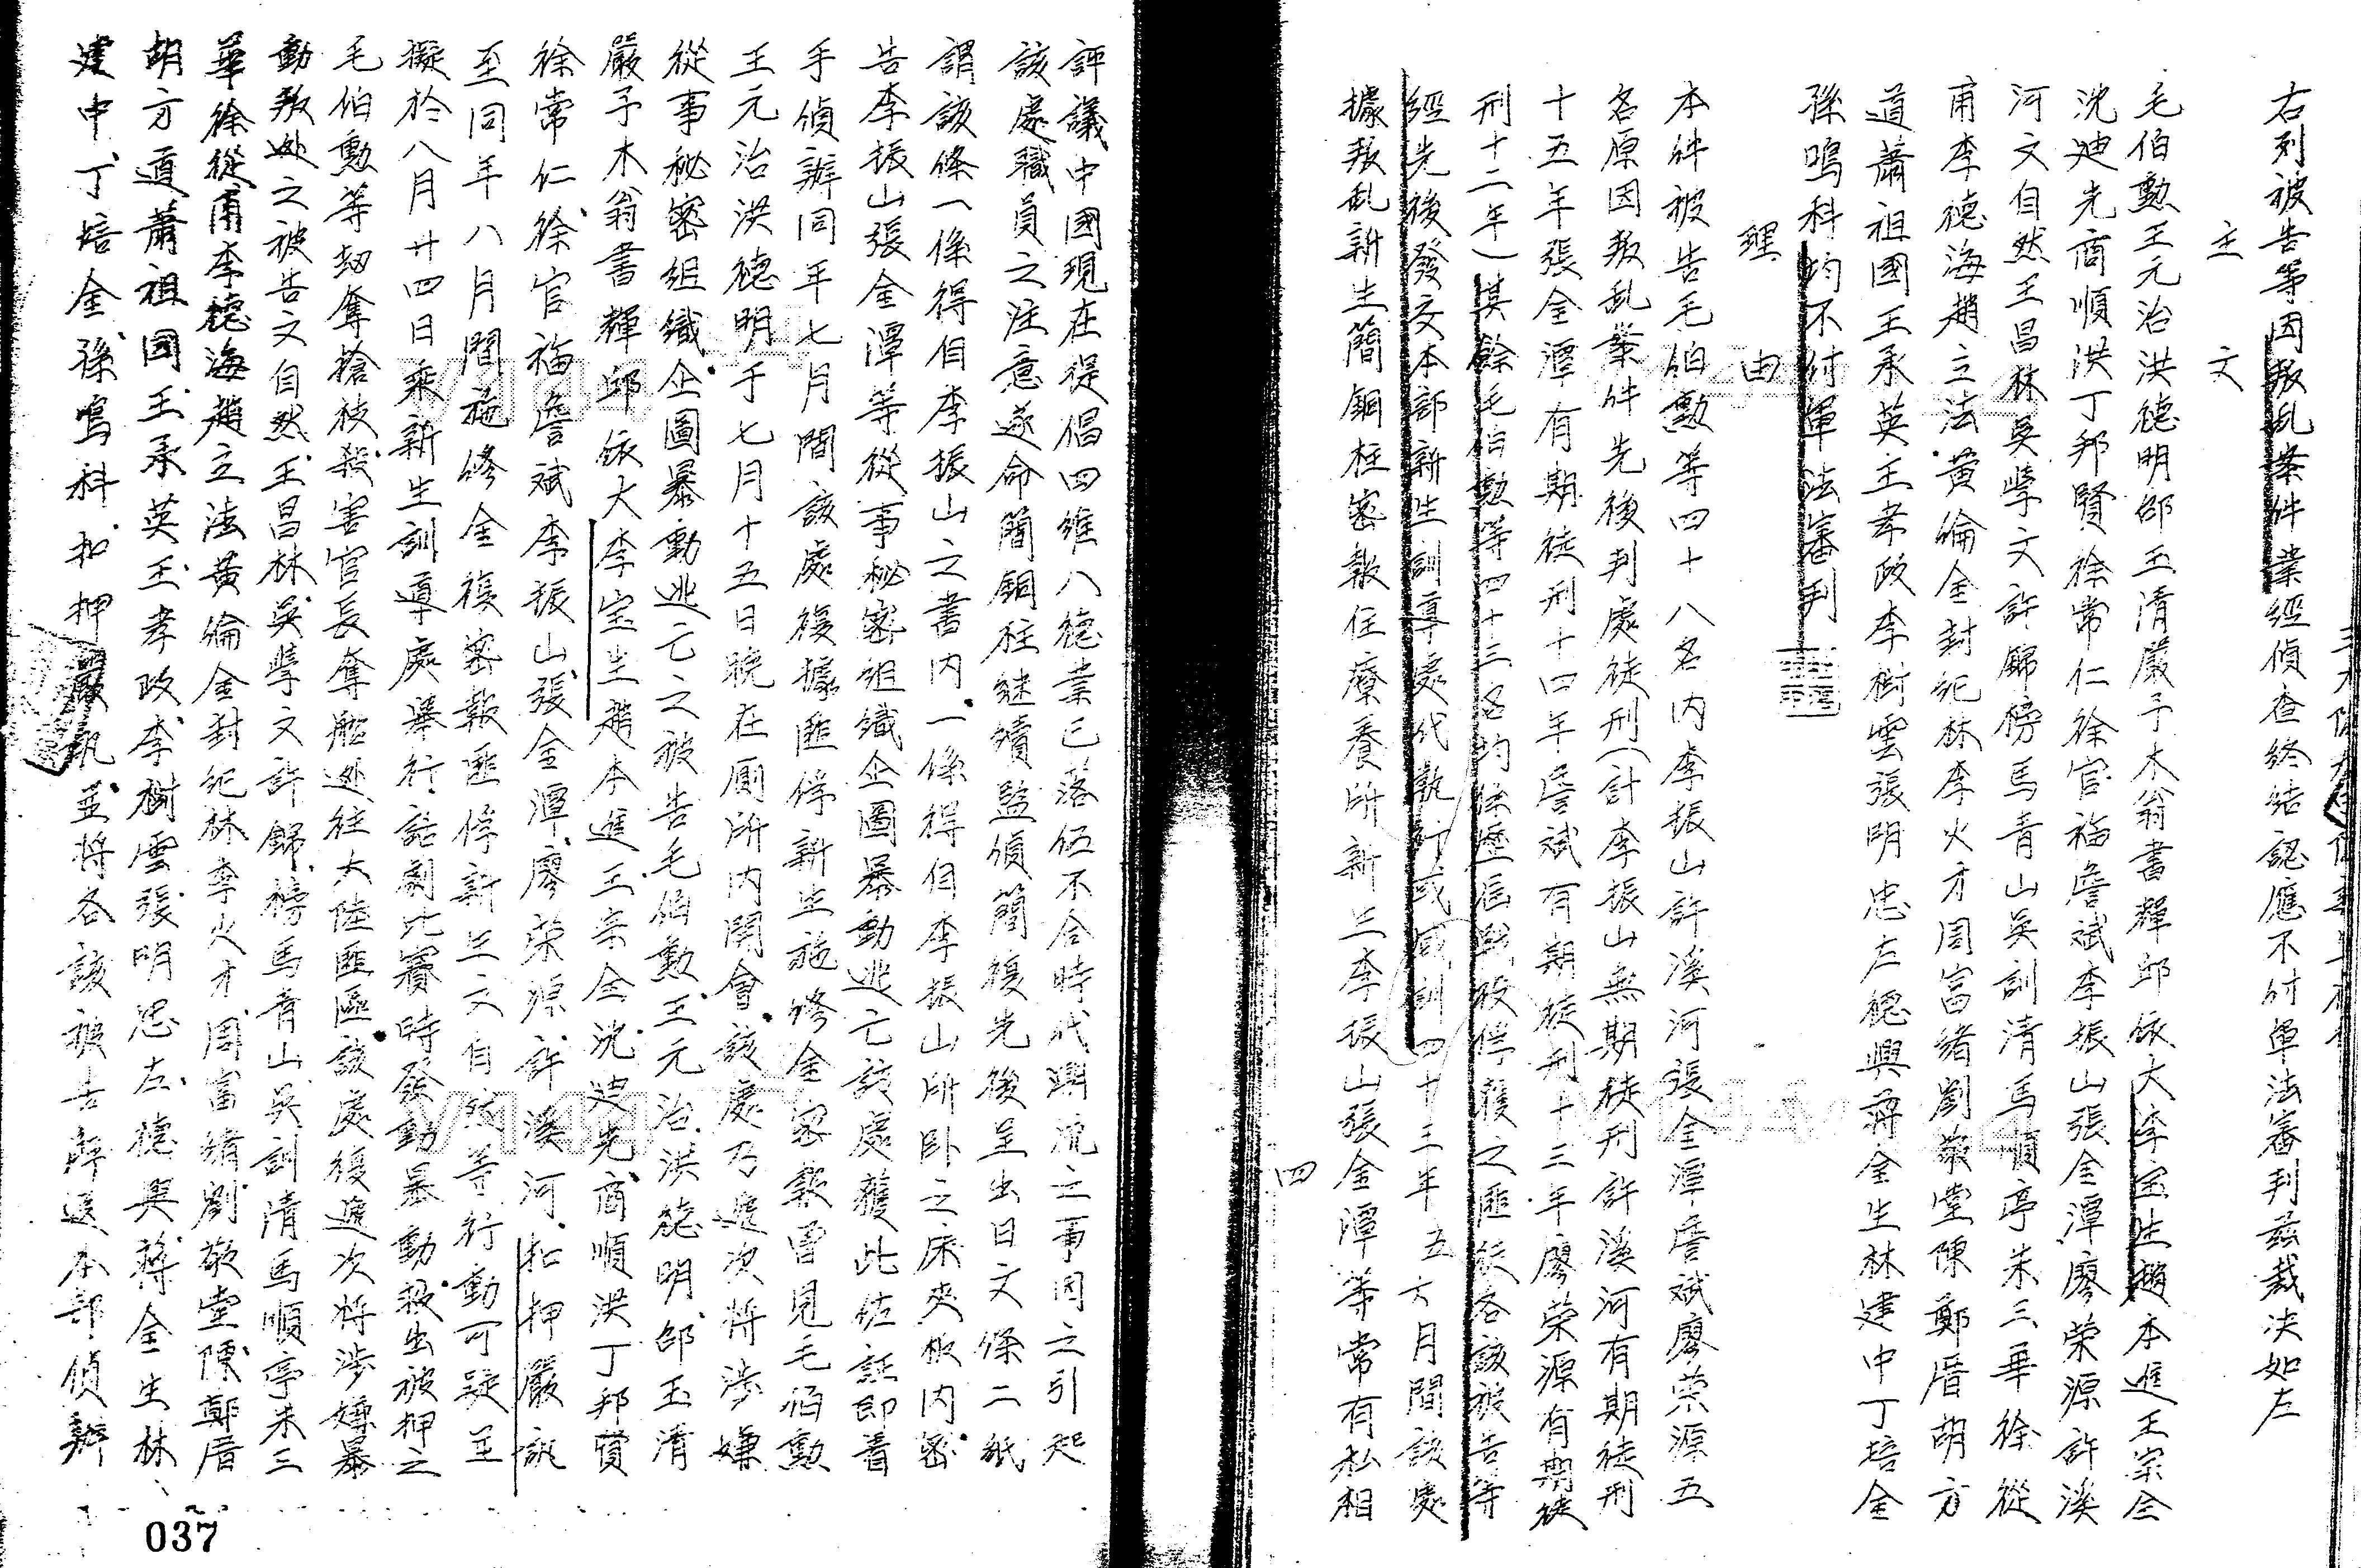 右列被告等因叛乱案件業經偵查終結認應不付軍法審判茲裁決如左
主文
毛伯勳王元治洪德明邵玉清嚴子木翁書輝邱依大李宝生趙本進王宗全
沈廸光商順洪丁邦賢徐常仁徐官福詹斌李振山張金潭廖荣源許溪
河文自然王昌林吳學文許錦榜馬青山吳訓清馬順亭朱三華徐從
甫李德海趙立法黃倫金封紀林李火才周富緒劉敬堂陳鄭厝胡方
道蕭祖國王承英王孝政李樹雲張明忠左德興蔣金生林建中丁培金
孫鳴科均不付軍法審判
理由
本件被告毛伯勳等四十八名内李振山許溪河張金潭詹斌廖荣源五
名原因叛乱案件先後判處徒刑(計李振山無期徒刑許溪河有期徒刑
十五年張金潭有期徒刑十四年詹斌有期徒刑十三年廖荣源有期徒
刑十二年)其餘毛伯勳等四十三名均係歷屆戰役俘獲之匪徒各該被告等
經先後發交本部新生訓導處代執行或感訓四十三年五六月間該處
據叛乱新生簡銅柱密報住療養所新生李振山張金潭等常有私相
四
評議中國現在提倡四維八德業已落伍不合時代潮流之事因之引起
該處職員之注意遂命簡銅柱継續監偵簡復先後呈出日文條二紙
謂該條一係得自李振山之書内一係得自李振山所卧之床夾板内密
告李振山張金潭等從事秘密組織企圖暴動逃亡該處獲此佐証即着
手偵辦同年七月間該處復據匪俘新生施修全密報曾見毛伯勳
王元治洪德明于七月十五日晚在厠所内開會該處乃遞次将涉嫌
從事秘密組織企圖暴動逃亡之被告毛伯勳王元治洪德明邵玉清
嚴子木翁書輝邱依大李宝生趙本進王宗全沈廸光商順洪丁邦賢
徐常仁徐官福詹斌李振山張金潭廖荣源許溪河扣押嚴訊
至同年八月間施修全復密報匪俘新生文自然等行動可疑並
擬於八月廿四日乘新生訓導處舉行話劇比賽時發動暴動救出被押之
毛伯勳等劫奪搶枝殺害官長奪船逃往大陸匪區該處復遞次将涉嫌暴
動叛逃之被告文自然王昌林吳學文許錦榜馬青山吳訓清馬順亭朱三
華徐從甫李德海趙立法黃倫金封紀林李火才周富緒劉敬堂陳鄭厝
胡方道蕭祖國王承英王孝政李樹雲張明忠左德興蔣金生林
建中丁培金孫鳴科扣押嚴訊並将各該被告解送本部偵辦
037